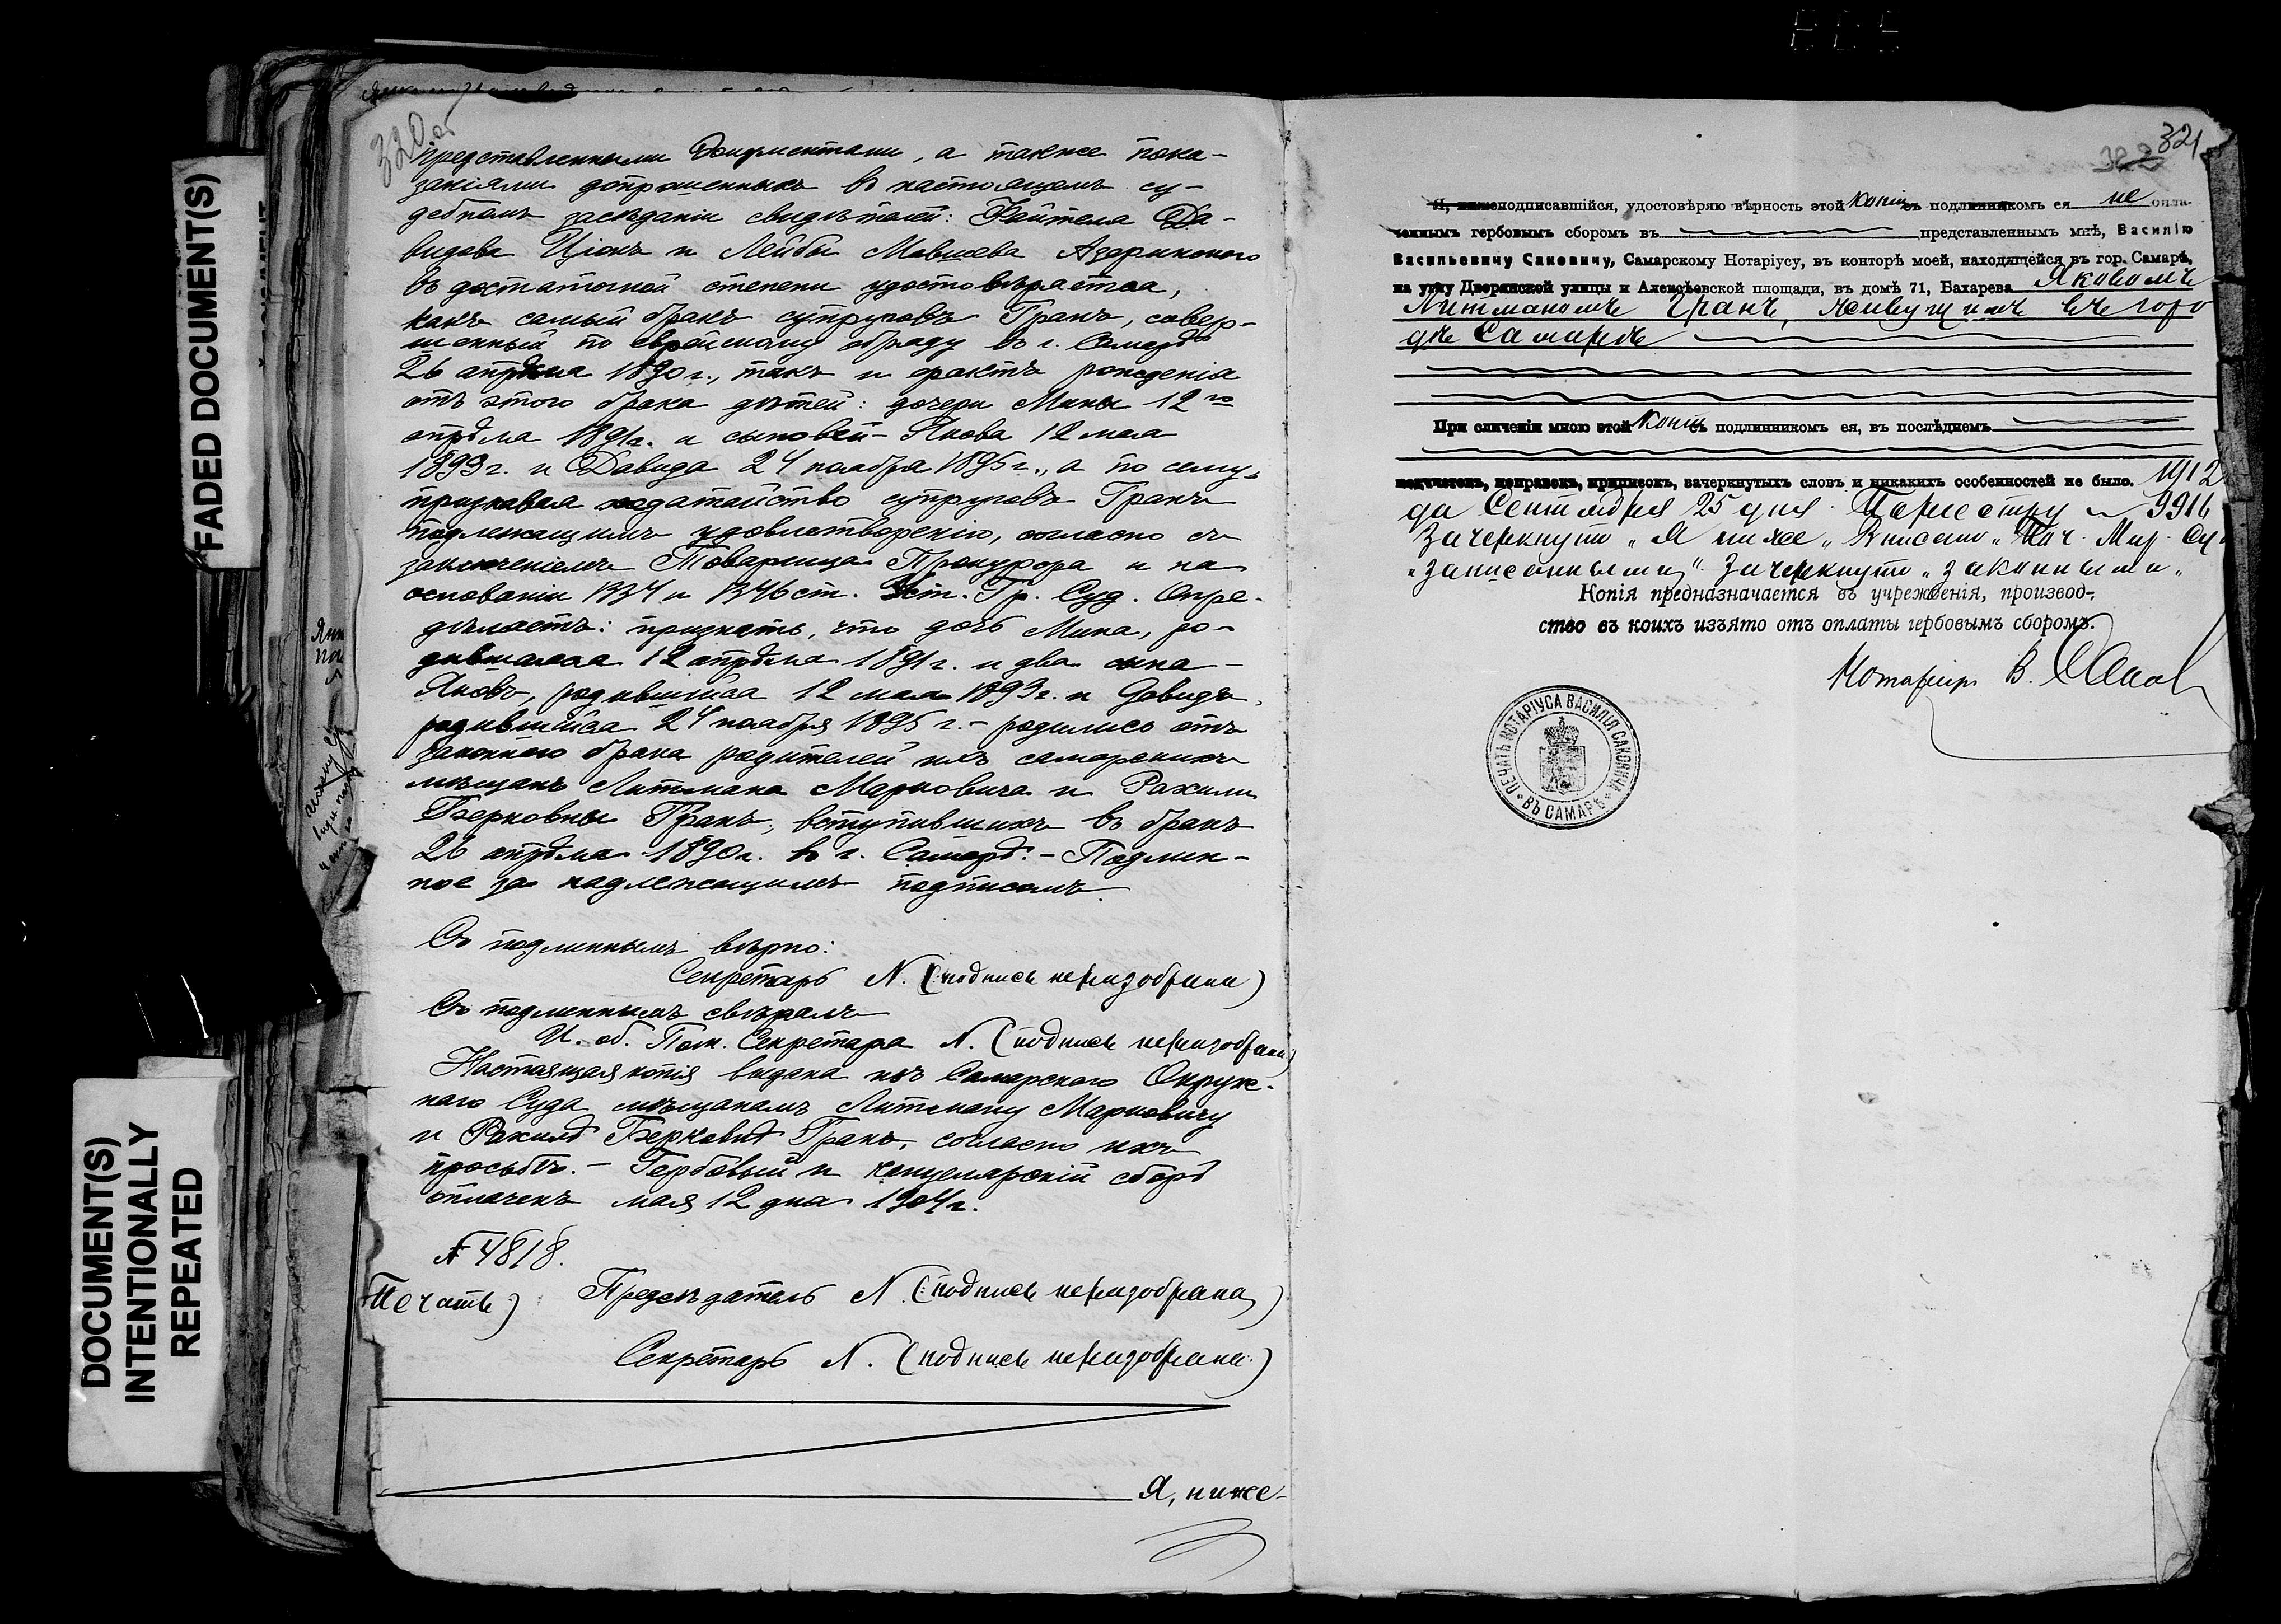 320 об
представленными документами, а также пока-
заніями допрошенныхъ въ настоящемъ су-
дебномъ засѣданіи свидѣтелей: Файтела Да-
видова Ціонъ и Лейбы Мовшева Азеринского
въ достаточной степени удостовѣряется,
какъ самый бракъ супруговъ Гранъ, совер-
шенный по еврейскому обряду въ г. Самарѣ
26 апрѣля 1890 г., такъ и фактъ рожденія
отъ этого брака дѣтей: дочери Мины 12го
апрѣля 1891 г. и сыновей - Якова 12 мая
1893 г. и Давида 24 ноября 1895 г., а по сему,
признавая ходатайство супруговъ Гранъ
подлежащимъ удовлетворенію, согласно съ
заключеніемъ Товарища Прокурора и на
основаніи 1334 и 1346 ст. Уст. Гр. Суд. Опре-
дѣляетъ: признать, что дочь Мина, ро-
дившаяся 12 апрѣля 1891 г. и два сына -
Яковъ, родившійся 12 мая 1893 г. и Давидъ,
родившійся 24 ноября 1895 г. - родились отъ
законного брака родителей ихъ самарскихъ
мѣщанъ Литмана Марковича и Рахили
Берковны Гранъ, вступившихъ въ бракъ
26 апрѣля 1890 г. въ г. Самарѣ. - Подлин-
ное за надлежащимъ подписомъ.
Съ подлиннымъ вѣрно:
Секретарь N. (подпись неразобрана)
Съ подлиннымъ свѣрялъ
И. об. Пом. Секретаря N. (подпись неразобрана)
Настоящая копія выдана изъ Самарского Окруж-
наго Суда мѣщанамъ Литману Марковичу
и Рахилѣ Берковнѣ Гранъ, согласно ихъ
просьбѣ. - Гербовый и канцелярскій сборъ
оплаченъ мая 12 дня 1904 г.
№ 4818.
(Печать) Предсѣдатель N. (подпись неразобрана)
Секретарь N. (подпись неразобрана)
Я, ниже-
FADED DOCUMENT(S)
DOCUMENT(S)
INTENTIONALLY
REPEATED
321
322
Я, нижеподписавшійся, удостовѣряю вѣрность этой копіи съ подлинникомъ ея не опла-
ченнымъ гербовымъ сборомъ въ представленнымъ мнѣ, Василію
Васильевичу Саковичу, Самарскому Нотаріусу, въ конторѣ моей, находящейся въ гор. Самарѣ,
на углу Дворянской улицы и Алексѣевской площади, въ домѣ 71, Бахарева Яковомъ
Литмановымъ Гранъ, живущимъ въ горо
дѣ Самарѣ
При сличеніи мною этой копіи съ подлинникомъ ея, въ послѣднемъ
подчистокъ, поправокъ, приписокъ, зачеркнутыхъ словъ и никакихъ особенностей не было. 1912
да Сентября 25 дня. По реестру № 9916
Зачеркнуто „Я ниже„ Вписано „Поч. Мир. Су
„записанными„ Зачеркнуто „законными„
Копія предназначается въ учрежденія, производ-
ство въ коихъ изъято отъ оплаты гербовымъ сборомъ.
Нотаріусъ В. Саков
ПЕЧАТЬ НОТАРІУСА ВАСИЛІЯ САКОВИЧА
ВЪ САМАРѢ